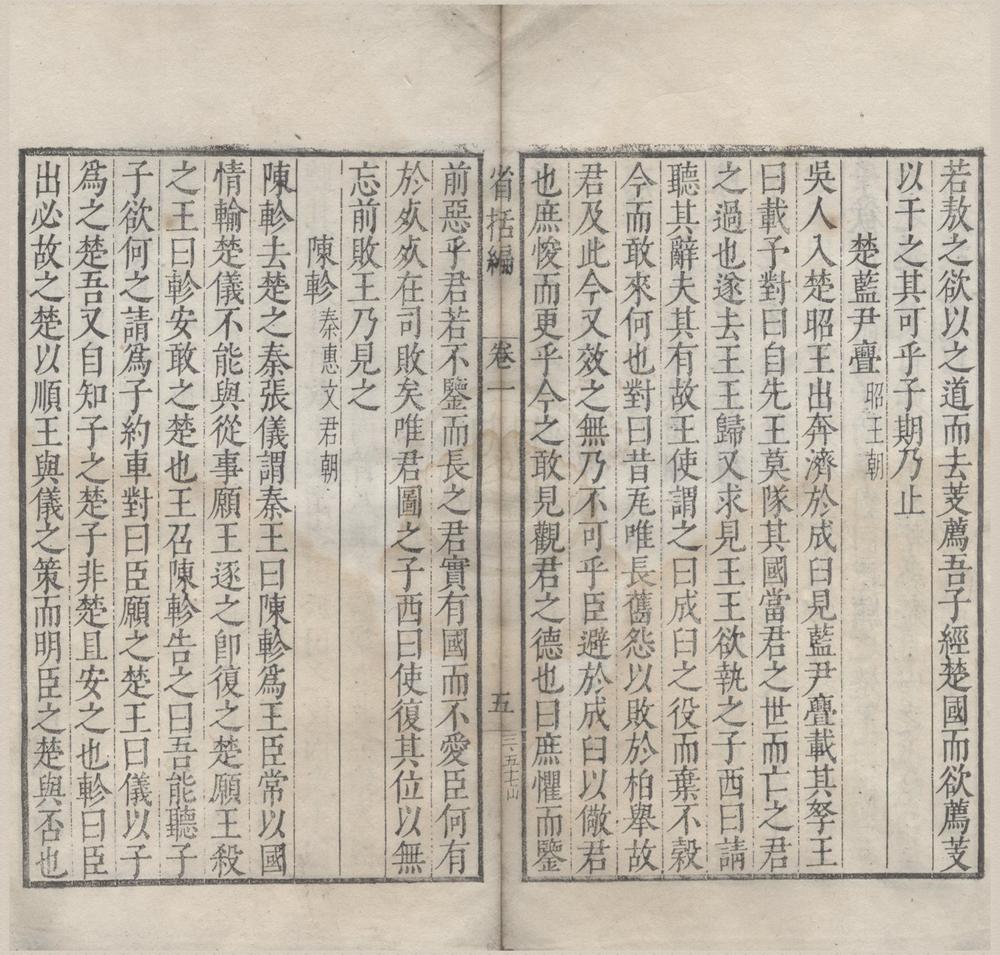 若敖之欲以之道而去芰薦吾子經楚國而欲薦芰
以干之其可乎子期乃止
楚藍尹亹昭王朝
吳人入楚昭王出奔濟於成臼見藍尹亹載其孥王
曰載予對曰自先王莫隊其國當君之世而亡之君
之過也遂去王王歸又求見王王欲執之子西曰請
聽其辭夫其有故王使謂之曰成臼之役而棄不穀
今而敢來何也對曰昔瓦唯長舊怨以敗於柏舉故
君及此今又效之無乃不可乎臣避於成臼以儆君
也庶悛而更乎今之敢見觀君之德也曰庶懼而鑒
省括編 卷一 五
前惡乎君若不鑒而長之君實有國而不愛臣何有
於死死在司敗矣唯君圖之子西曰使復其位以無
忘前敗王乃見之
陳軫秦惠文君朝
陳軫去楚之秦張儀謂秦王曰陳軫爲王臣常以國
情輸楚儀不能與從事願王逐之卽復之楚願王殺
之王曰軫安敢之楚也王召陳軫告之曰吾能聽子
子欲何之請爲子約車對曰臣願之楚王曰儀以子
爲之楚吾又自知子之楚子非楚且安之也軫曰臣
出必故之楚以順王與儀之策而明臣之楚與否也